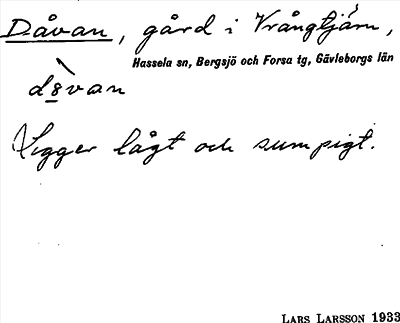 Dåvan, gård i Vrångtjärn,
Hassela sn, Bergsjö och Forsa tg, Gävleborgs län
d8̲van
Ligger lågt och sumpigt.
LARS LARSSON 1933